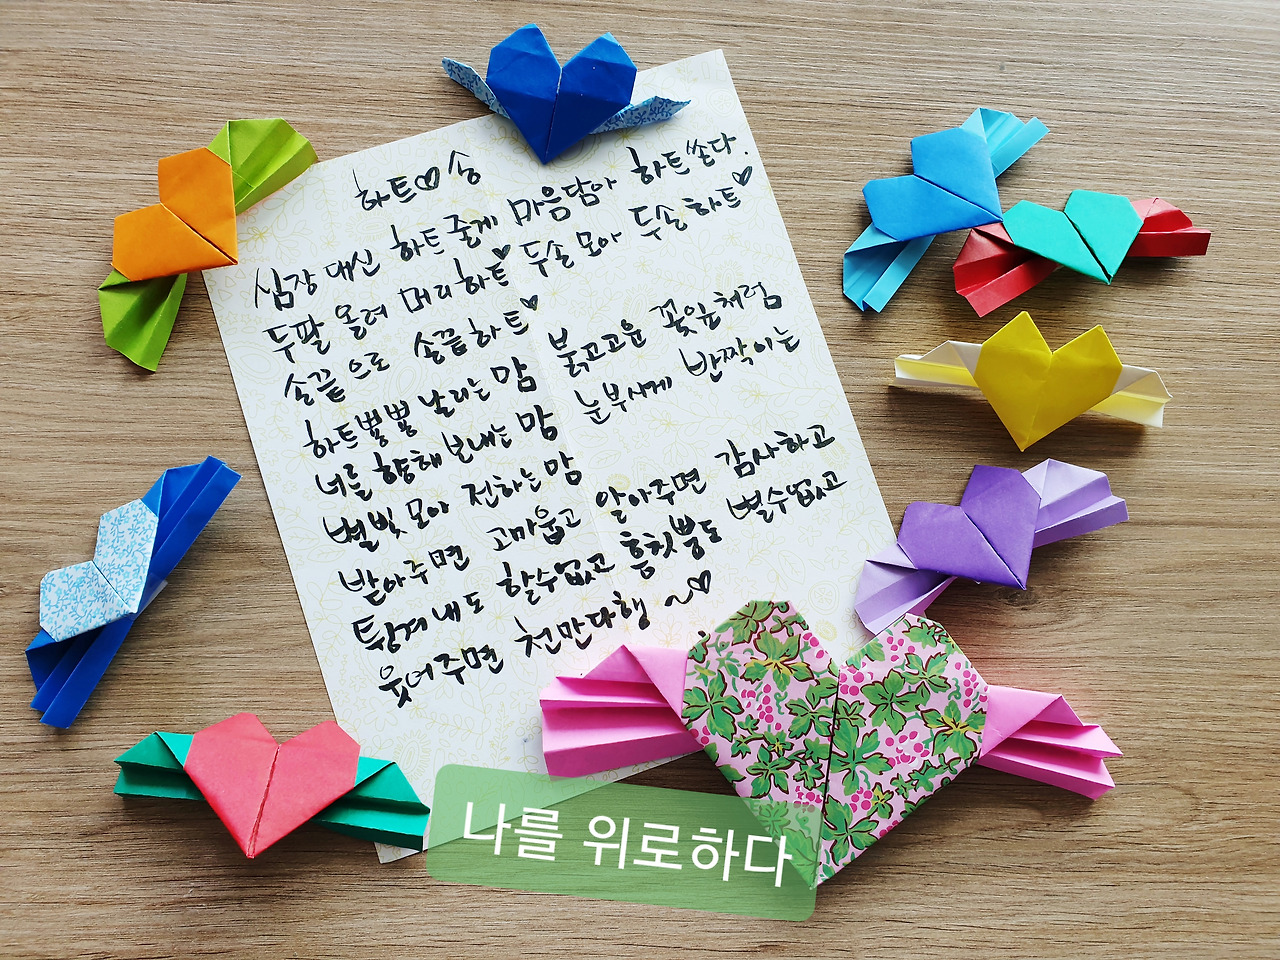 하트♡송
심장 대신 하트 줄게 마음담아 하트쏜다.
두팔 올려 머리하트♡ 두손 모아 두손하트♡
손끝으로 손끝하트♡
하트뿅뿅 날리는 맘 붉고고운 꽃잎처럼
너를 향해 보내는 맘 눈부시게 반짝이는
별빛 모아 전하는 맘
받아주면 고마웁고 알아주면 감사하고
튕겨내도 할수없고 흥칫뿡도 별수없고
웃어주면 천만다행 ~♡
나를 위로하다